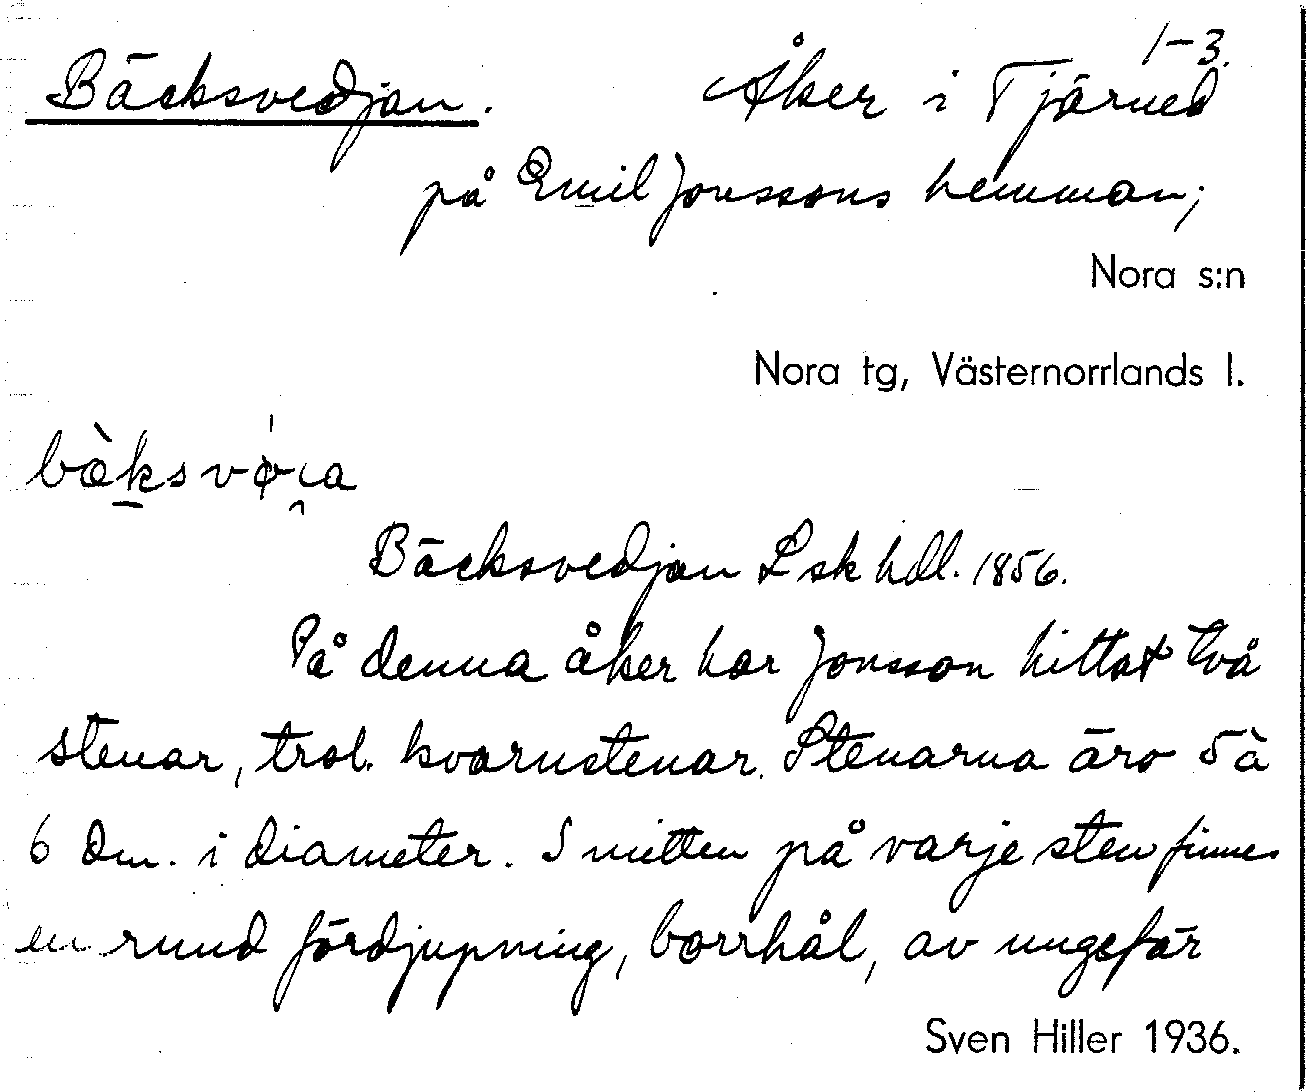 1-3.
Bäcksvedjan. Åker i Tjärned
på Emil Jonssons hemman;
Nora s:n
Nora tg, Västernorrlands l.
Bäcksvedjan Lsk hdl. 1856.
På denna åker har Jonsson hittat två
stenar, trol. kvarnstenar. Stenarna äro 5 à
6 dm. i diameter. I mitten på varje sten finnes
en rund fördjupning, borrhål, av ungefär
Sven Hiller 1936.